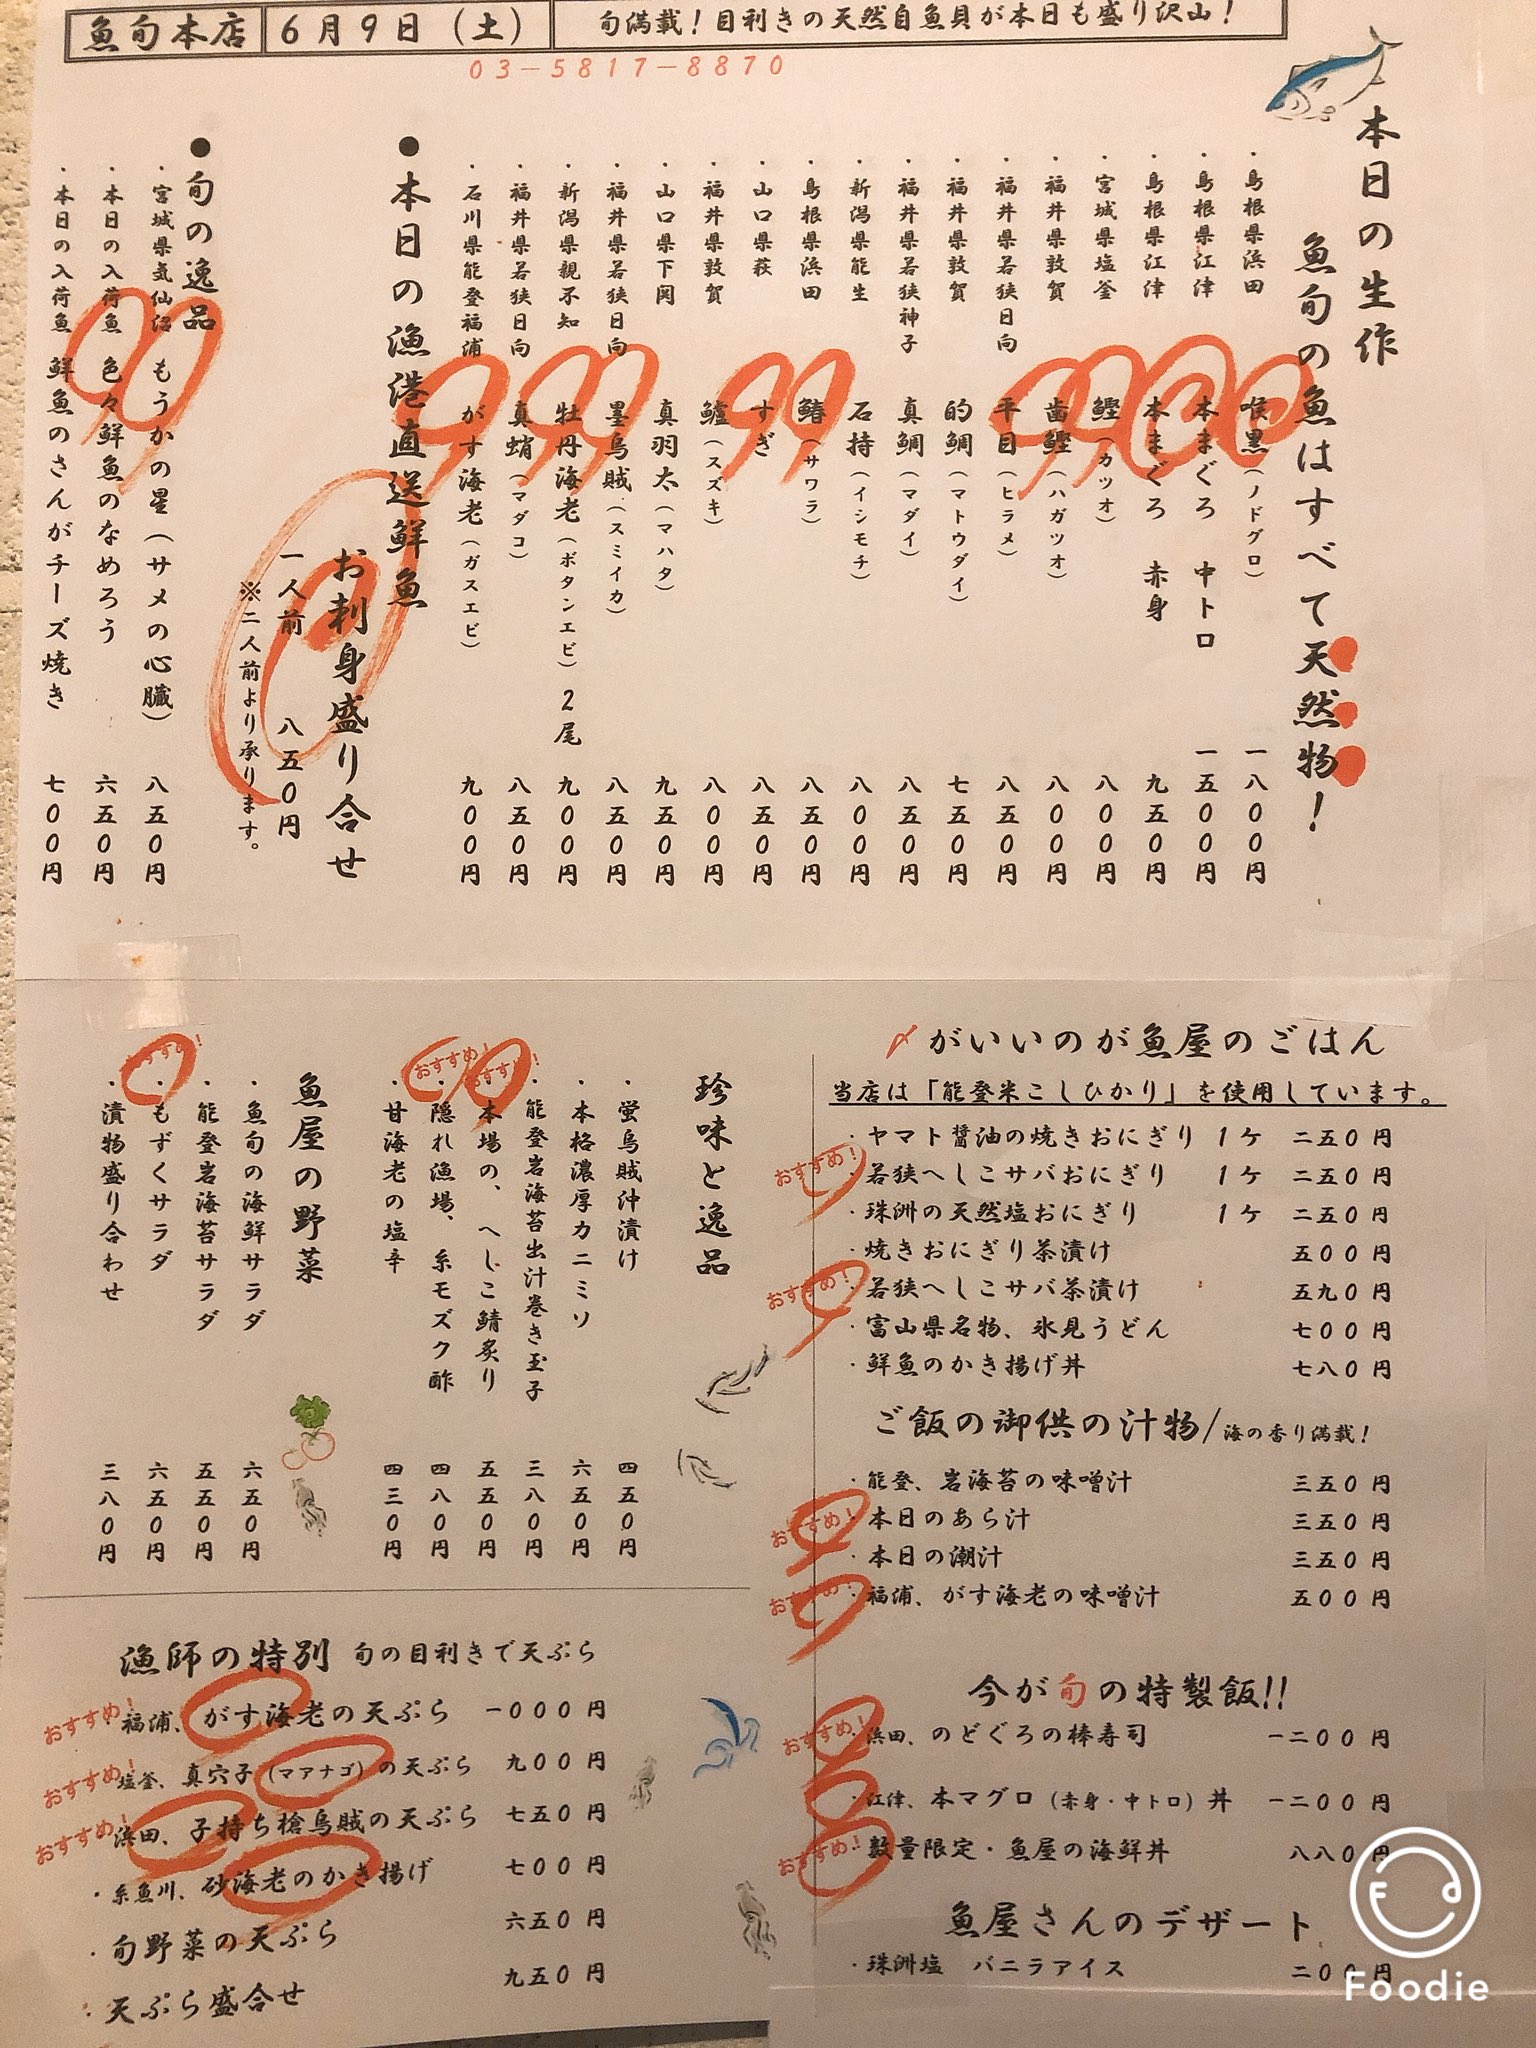 魚旬本店
6月9日(土)
旬満載!目利きの天然自魚貝が本日も盛り沢山!
03-5817-8870
本日の生作
魚旬の魚はすべて天然物!
・島根県浜田 喉黒(ノドグロ) 一八00円
・島根県江津 本まぐろ 中トロ 一五00円
・島根県江津 本まぐろ 赤身 九五0円
・宮城県塩釜 鰹(カツオ) 八00円
・福井県敦賀 歯鰹(ハガツオ) 八00円
・福井県若狭日向 平目(ヒラメ) 八五0円
・福井県敦賀 的鯛(マトウダイ) 七五0円
・福井県若狭神子 真鯛(マダイ) 八五0円
・新潟県能生 石持(イシモチ) 八00円
・島根県浜田 鰆(サワラ) 八五0円
・山口県萩 すぎ 八五0円
・福井県敦賀 鱸(スズキ) 八00円
・山口県下関 真羽太(マハタ) 九五0円
・福井県若狭日向 墨烏賊(スミイカ) 八五0円
・新潟県親不知 牡丹海老(ボタンエビ)2尾 九00円
・福井県若狭日向 真蛸(マダコ) 八五0円
・石川県能登福浦 がす海老(ガスエビ) 九00円
●本日の漁港直送鮮魚
お刺身盛り合せ
一人前 八五0円
※二人前より承ります。
●旬の逸品
・宮城県気仙沼 もうかの星(サメの心臓) 八五0円
・本日の入荷魚 色々鮮魚のなめろう 六五0円
・本日の入荷魚 鮮魚のさんがチーズ焼き 七00円
〆がいいのが魚屋のごはん
当店は「能登米こしひかり」を使用しています。
・ヤマト醤油の焼きおにぎり 1ケ 二五0円
おすすめ!・若狭へしこサバおにぎり 1ケ 二五0円
・珠洲の天然塩おにぎり 1ケ 二五0円
・焼きおにぎり茶漬け 五00円
おすすめ!・若狭へしこサバ茶漬け 五九0円
・富山県名物、氷見うどん 七00円
・鮮魚のかき揚げ丼 七八0円
ご飯の御供の汁物/海の香り満載!
・能登、岩海苔の味噌汁 三五0円
おすすめ!・本日のあら汁 三五0円
・本日の潮汁 三五0円
おすすめ!・福浦、がす海老の味噌汁 五00円
今が旬の特製飯!!
おすすめ!・浜田、のどぐろの棒寿司 一二00円
・江津、本マグロ(赤身・中トロ)丼 一二00円
おすすめ!・数量限定・魚屋の海鮮丼 八八0円
魚屋さんのデザート
・珠洲塩 バニラアイス 二00円
珍味と逸品
・蛍烏賊沖漬け 四五0円
・本格濃厚カニミソ 六五0円
・能登岩海苔出汁巻き玉子 三八0円
おすすめ!・本場の、へしこ鯖炙り 五五0円
おすすめ!・隠れ漁場、糸モズク酢 四八0円
・甘海老の塩辛 四三0円
魚屋の野菜
・魚旬の海鮮サラダ 六五0円
・能登岩海苔サラダ 五五0円
おすすめ!・もずくサラダ 六五0円
・漬物盛り合わせ 三八0円
漁師の特別 旬の目利きで天ぷら
おすすめ!・福浦、がす海老の天ぷら 一000円
おすすめ!・塩釜、真穴子(マアナゴ)の天ぷら 九00円
おすすめ!・浜田、子持ち槍烏賊の天ぷら 七五0円
・糸魚川、砂海老のかき揚げ 七00円
・旬野菜の天ぷら 六五0円
・天ぷら盛合せ 九五0円
Foodie